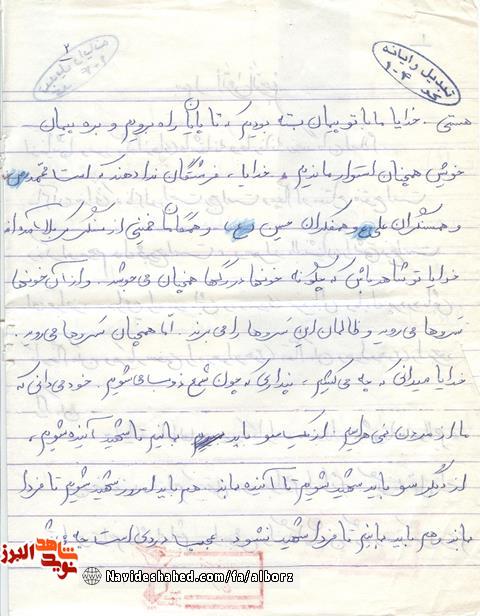 ۲
تبدیل رایانه
کد ۱۰۴
هستی . خدایا ما با تو پیمان بسته بودیم که تا پایان راه برویم و بر پیمان
خویش همچنان استوار ماندیم و خدایا ، فرشتگان ندا دهند که امت محمد (ص)
و همسنگران علی (ع) و همفکران حسین (ع) و همگامان خمینی از سنگر کربلا آمده‌اند
خدایا تو شاهد باش که چگونه خونها در رگها همچنان می‌جوشد . و از آن خونها
سروها می‌روید و ظالمان این سروها را می‌برند . اما همچنان سروها می‌روید .
خدایا میدانی که چه می‌کشیم ، پنداری که چون شمع ذوب می‌شویم . خود می‌دانی که
ما از مردن نمی‌هراسیم از یکسو باید بمانیم تا شهید آینده شویم ،
از دیگر سو باید شهید شویم تا آینده بماند . هم باید امروز شهید شویم تا فردا
بماند و هم باید بمانیم تا فردا شهید نشود . عجب دردی است چه
نوید شاهد البرز
Navideshahed.com/fa/alborz